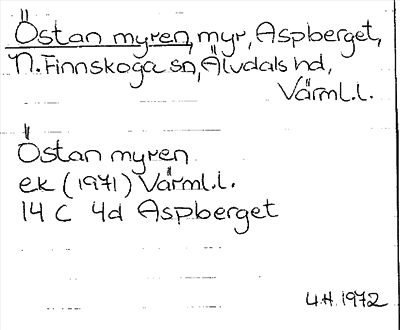 Östan myren, myr, Aspberget,
N. Finnskoga sn, Älvdals hd,
Värml.l.
Östan myren
ek (1971) Värml.l.
14 C 4d Aspberget
U.H. 1972